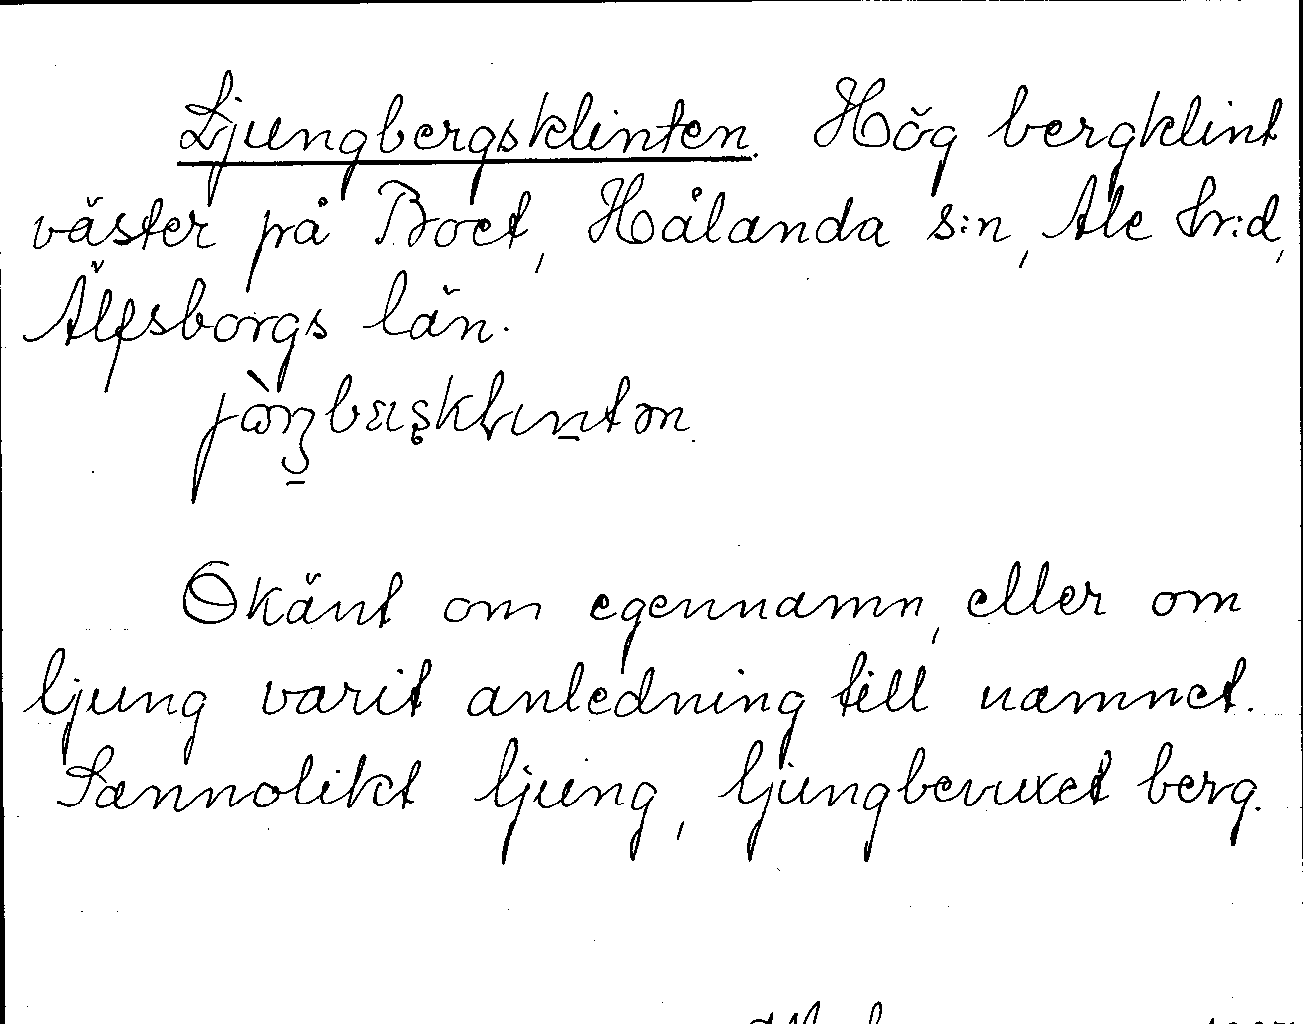 Ljungbergsklinten. Hög bergklint
väster på Boet, Hålanda s:n, Ale hr:d,
Älfsborgs län.
Okänt om egennamn, eller om
ljung varit anledning till namnet.
Sannolikt ljung, ljungbevuxet berg.